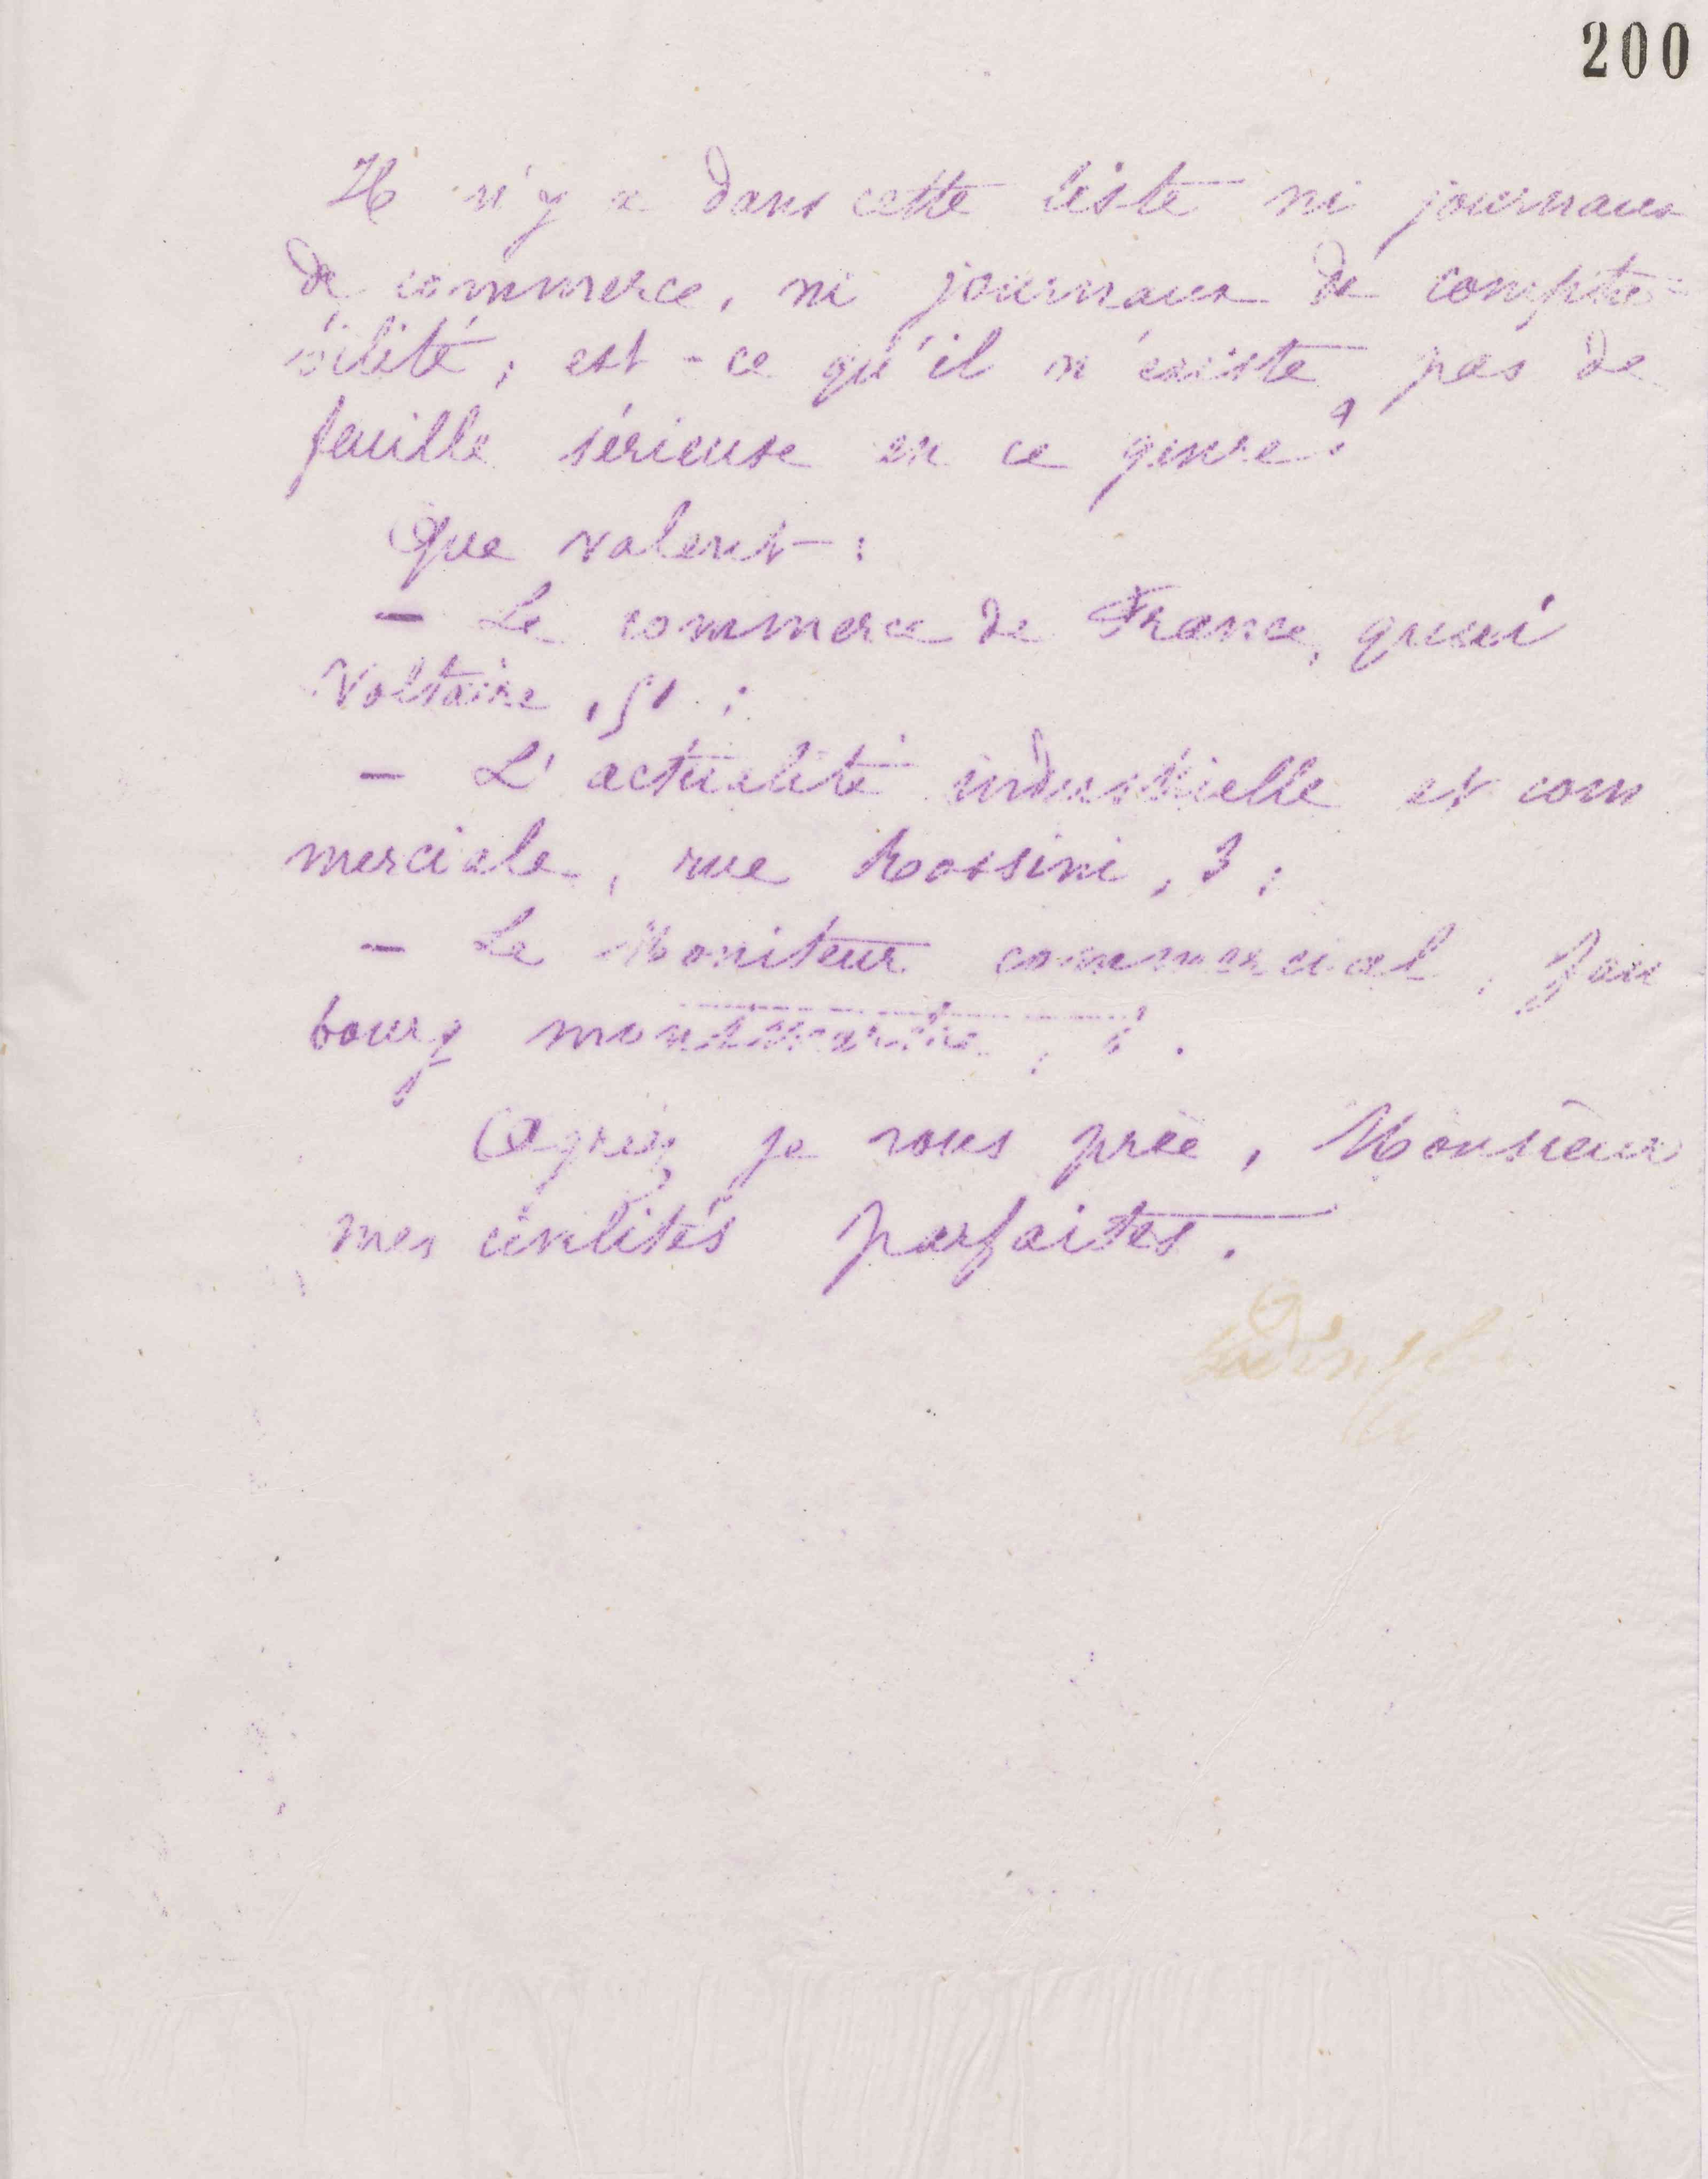 200
Il n'y a dans cette liste ni journaux
de commerce, ni journaux de compta-
bilité, est-ce qu'il n'existe pas de
feuille sérieuse en ce genre ?
Que valent :
— Le commerce de France, quai
Voltaire, 51 ;
— L'actualité industrielle et com
merciale, rue Rossini, 3 ;
— Le Moniteur commercial, fau
bourg montmartre,
Agréez je vous prie, Monsieur
mes civilités parfaites.
Godin